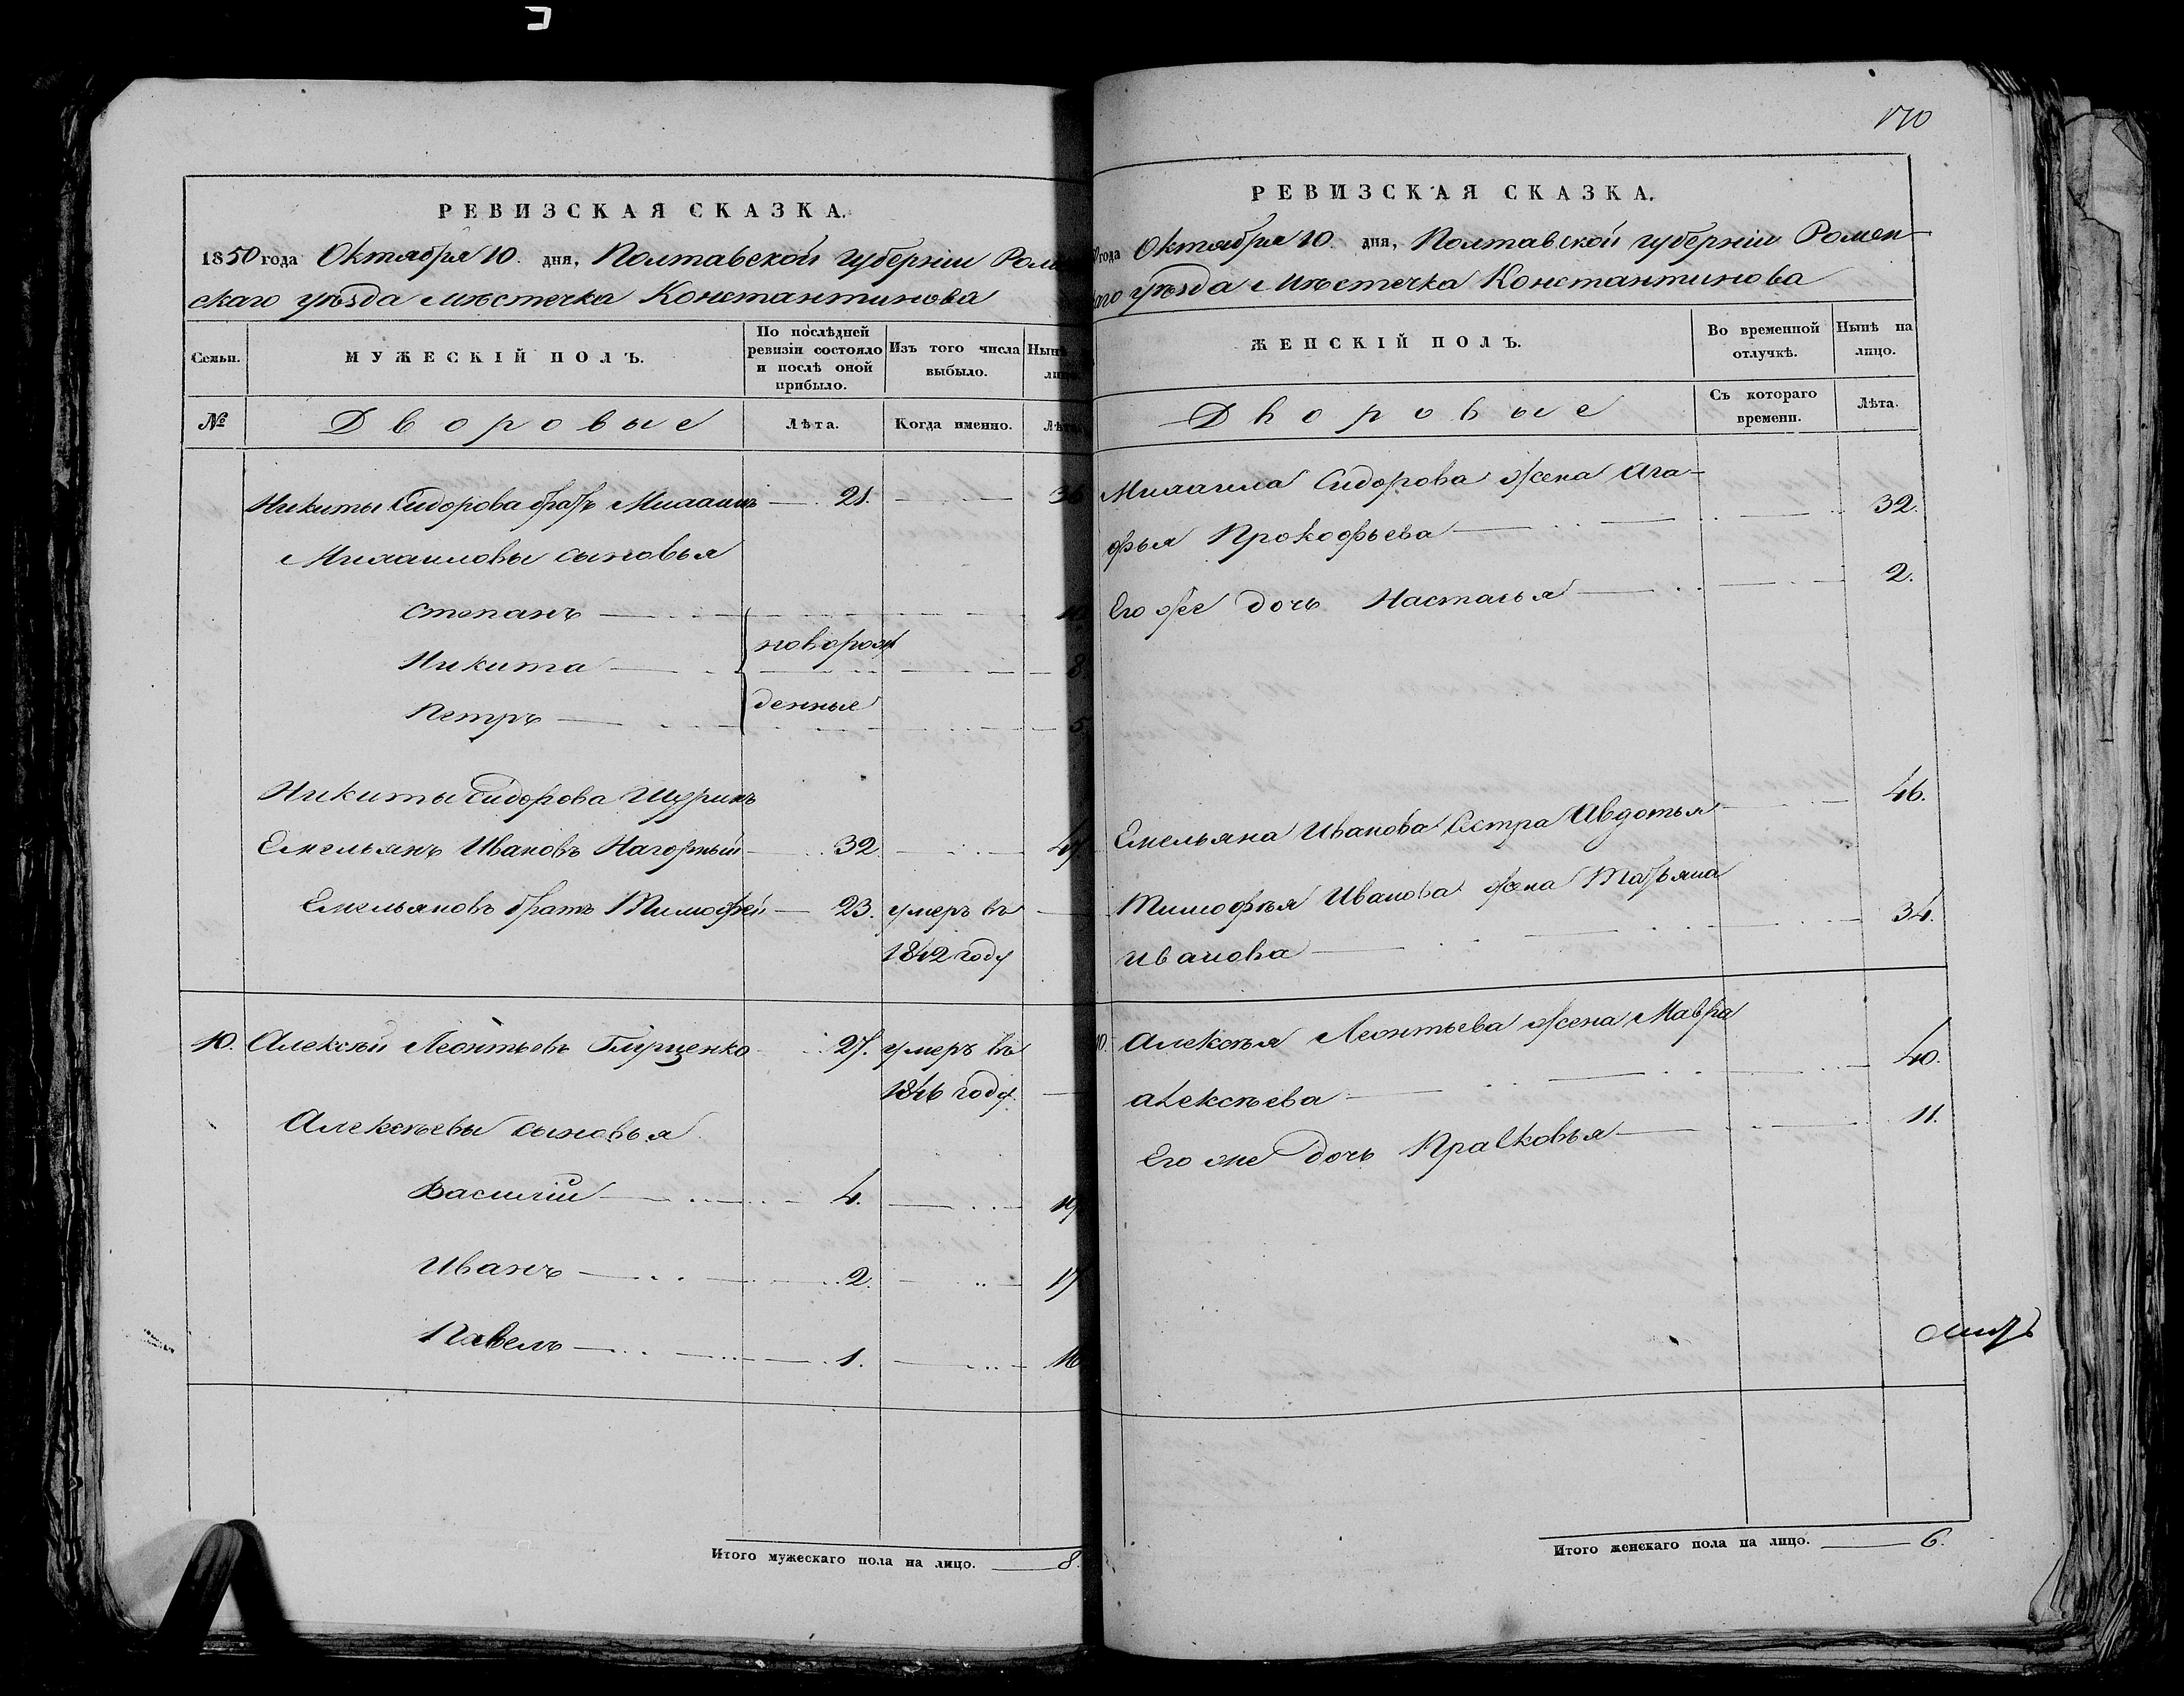 РЕВИЗСКАЯ СКАЗКА.
1850 года Октября 10. дня, Полтавской губерніи Ромен
скаго уѣзда мѣстечка Константинова
Семьи.
МУЖЕСКІЙ ПОЛЪ.
По послѣдней
ревизіи состояло
и послѣ оной
прибыло.
Изъ того числа
выбыло.
Нынѣ
лицо
№
Дворовые
Лѣта.
Когда именно.
Лѣта
Никиты Сидорова братъ Михаилъ 21. 36
Михаиловы сыновья
Степанъ
новорож
Никита 8
денные
Петръ 5
Никиты Сидорова Шуринъ
Емельянъ Ивановъ Нагорный 32. 47
Емельяновъ братъ Тимофей 23. умеръ въ
1842 году
10. Алексѣй Леонтьевъ 27. умеръ въ
1846 году
Алексѣевы сыновья
Василій 4. 19
Иванъ 2. 17
Павелъ 1. 16
Итого мужескаго пола на лицо. 8.
170
РЕВИЗСКАЯ СКАЗКА.
0 года Октября 10. дня, Полтавской губерніи Ромен-
каго уѣзда мѣстечка Константинова
ЖЕНСКІЙ ПОЛЪ.
Во временной
отлучкѣ.
Нынѣ на
лицо.
Дворовые
Съ котораго
времени.
Лѣта.
Михаила Сидорова жена Ага-
фья Прокофьева 32.
Его же дочь Настасья 2.
Емельяна Иванова Сестра Авдотья 46.
Тимофѣя Иванова жена Татьяна
Иванова 34.
10. Алексѣя Леонтьева жена Мавра
Алексѣева 40.
Его же дочь Прасковья 11.
Итого женскаго пола на лицо. 6.